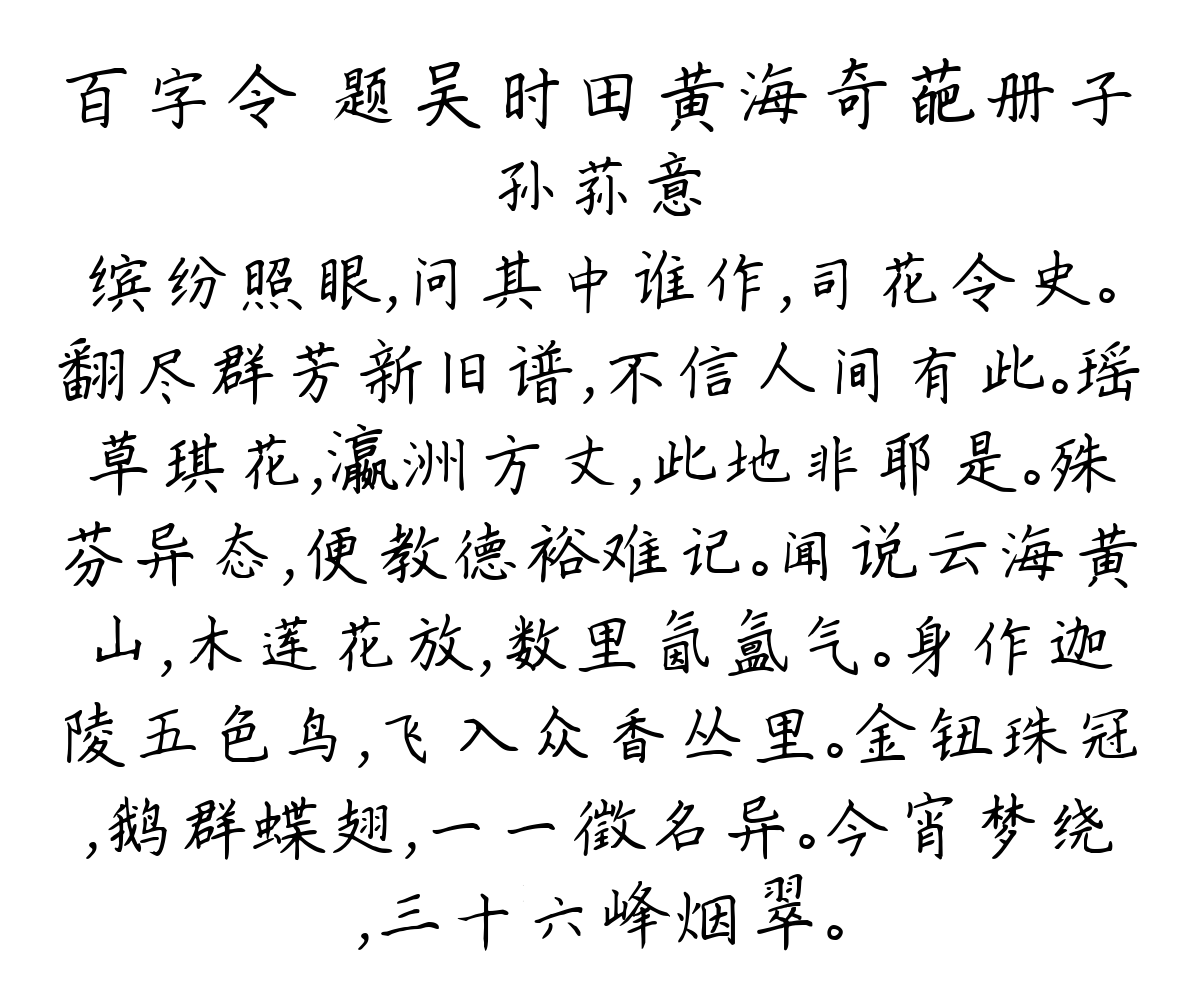 百字令 题吴时田黄海奇葩册子
孙荪意
缤纷照眼,问其中谁作,司花令史。
翻尽群芳新旧谱,不信人间有此。瑶
草琪花,瀛洲方丈,此地非耶是。殊
芬异态,便教德裕难记。闻说云海黄
山,木莲花放,数里氤氲气。身作迦
陵五色鸟,飞入众香丛里。金钮珠冠
,鹅群蝶翅,一一徵名异。今宵梦绕
,三十六峰烟翠。